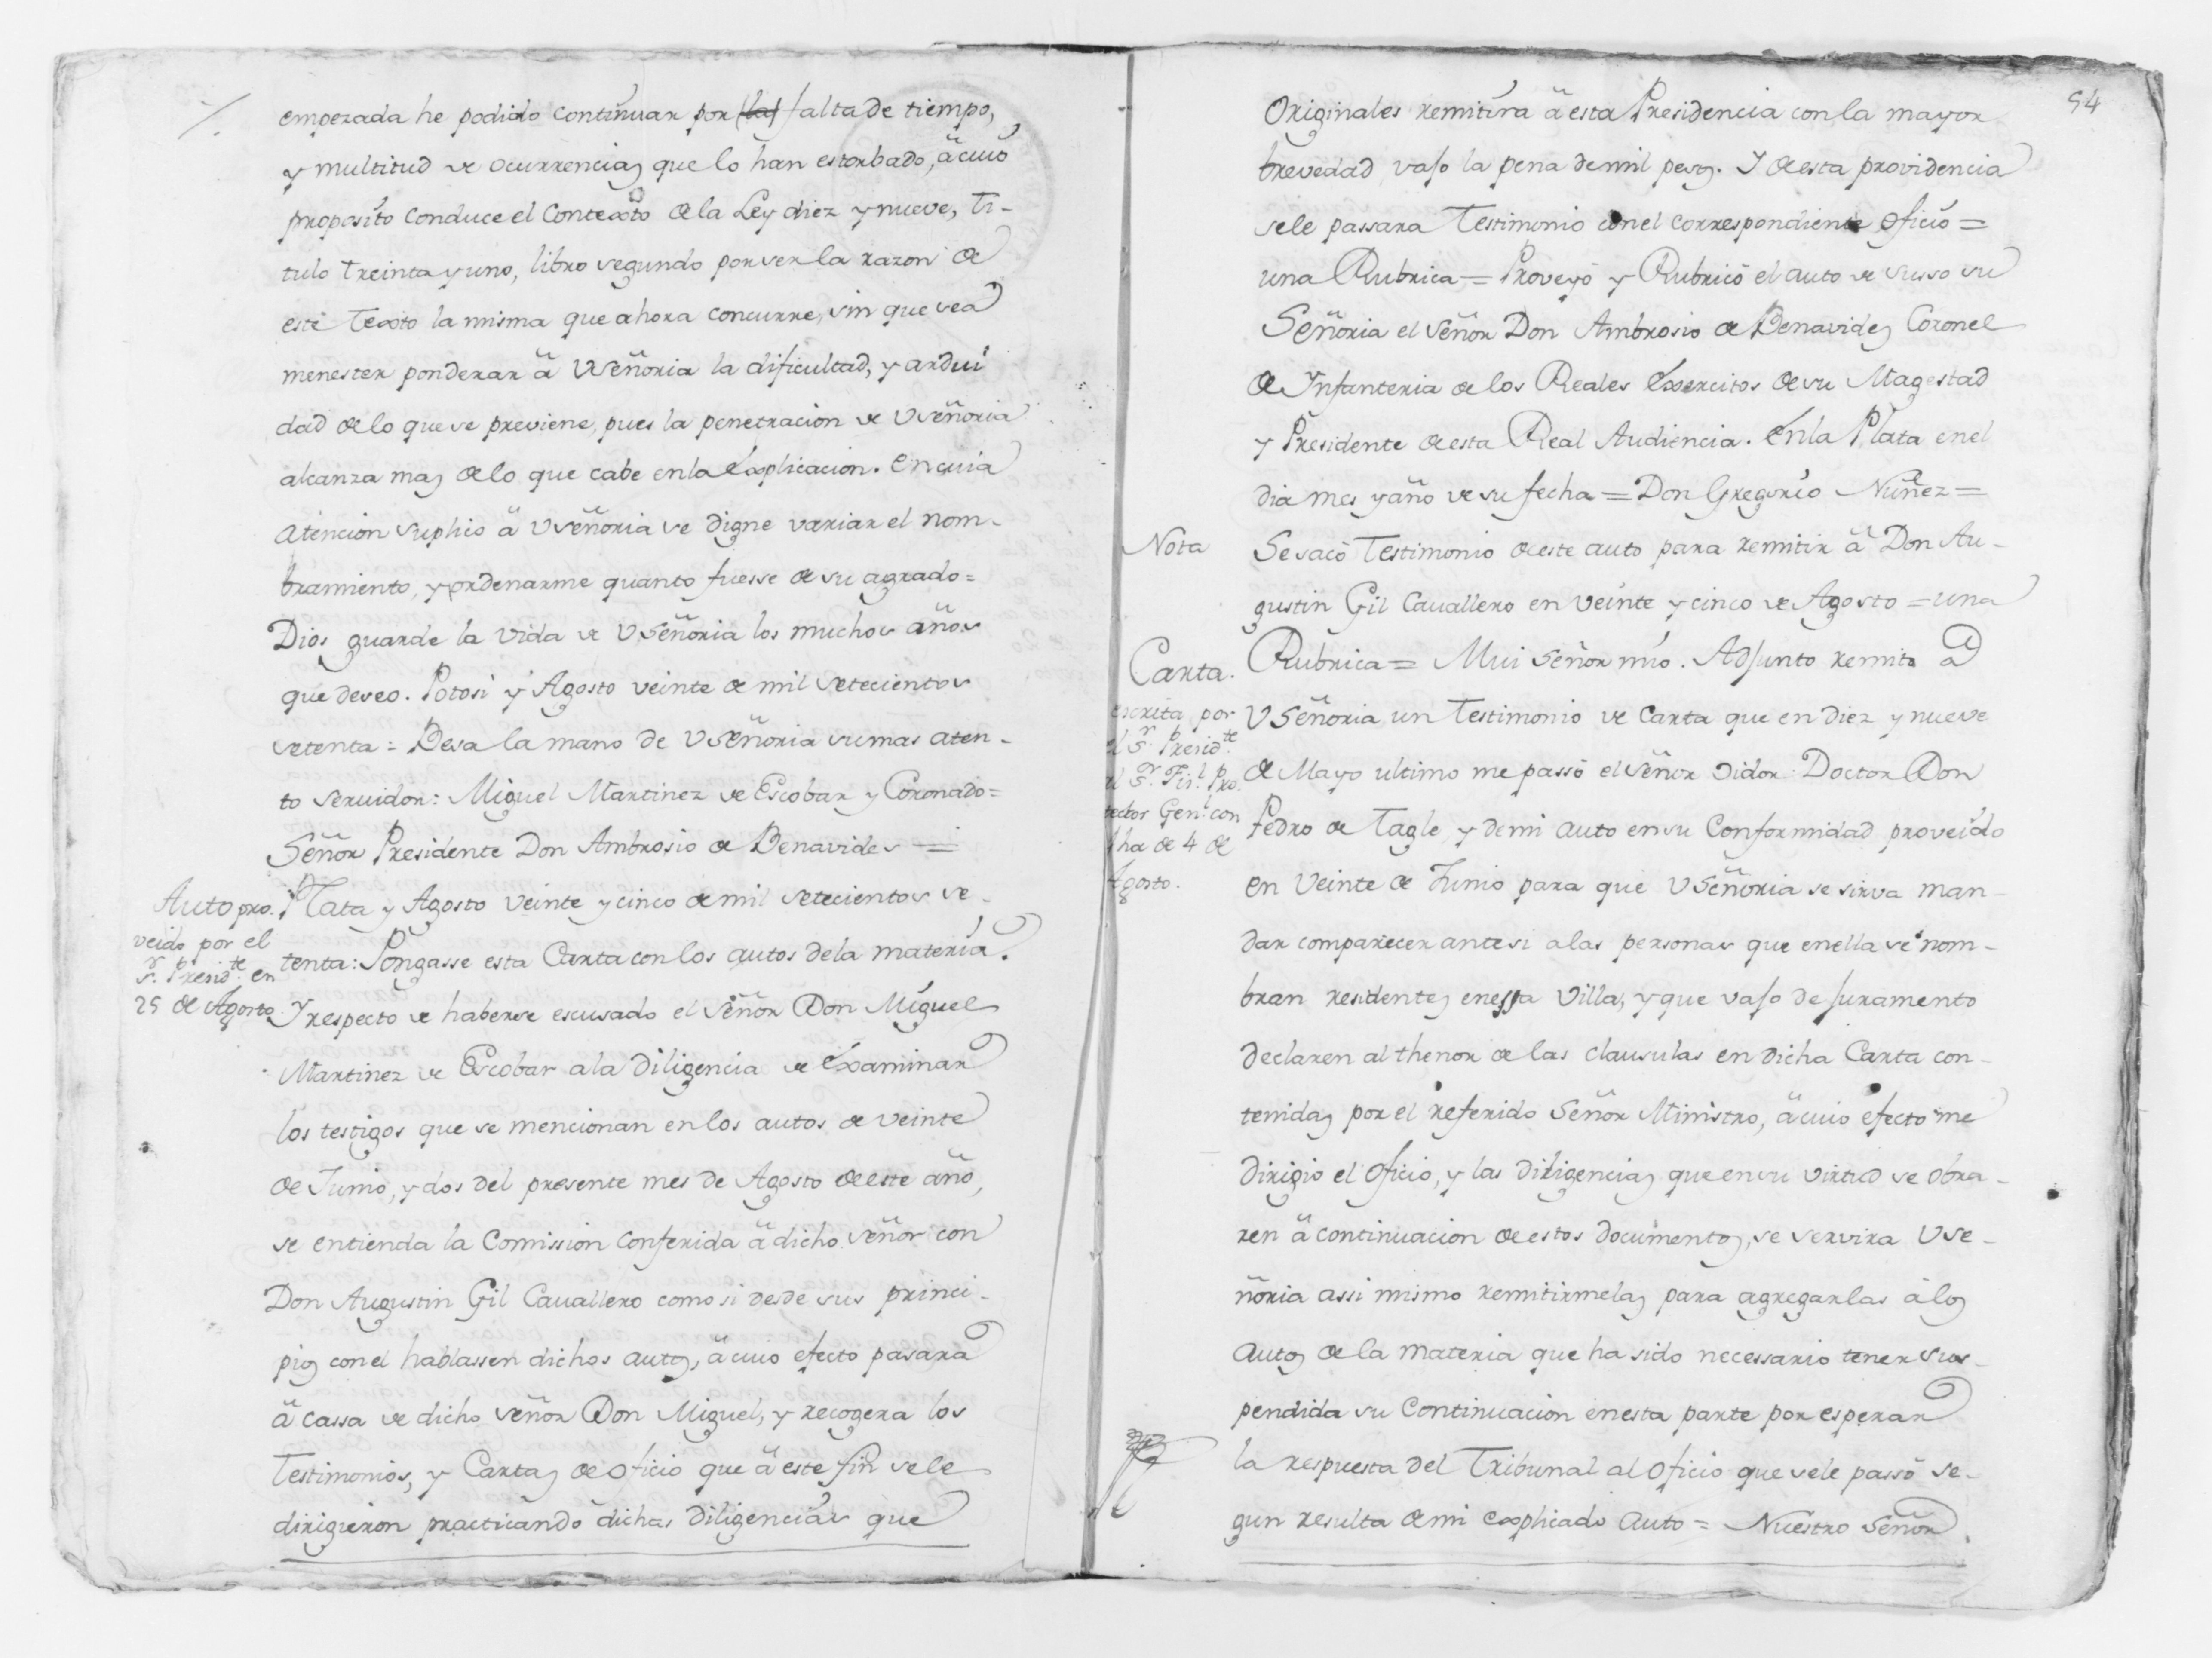 empezada he podido continuar por (la) falta de tiempo,
y multitud de ocurrencias que lo han estorbado, â cuio
proposito conduce el Contexto de la Ley diez y nueve, ti-
tulo treinta y uno, libro segundo por ser la razon de
este Texto la misma que ahora concurre, sin que sea
menester ponderar â VSeñoria la dificultad, y ardui
dad de lo que se previene, pues la penetracion de VSeñoria
alcanza mas de lo que cabe en la explicacion. En cuia
atencion suplico â VSeñoria se digne variar el nom-
bramiento, y ordenarme quanto fuesse de su agrado =
Dios guarde la vida de VSeñoria los muchos años
que deseo. Potosi y Agosto veinte de mil setecientos
setenta = Besa la mano de VSeñoria su mas aten-
to servidor: Miguel Martinez de Escobar y Coronado =
Señor Presidente Don Ambrosio de Benavides =
Auto pro-
veido por el
Sr. Presidte. en
25 de Agosto
Plata y Agosto veinte y cinco de mil setecientos se-
tenta: Pongasse esta Carta con los autos de la materia.
Y respecto de haberse escusado el Señor Don Miguel
Martinez de Escobar a la diligencia de examinar
los testigos que se mencionan en los autos de veinte
de Junio, y dos del presente mes de Agosto de este año,
se entienda la Comission conferida â dicho Señor con
Don Augustin Gil Cavallero como si desde sus princi-
pios con el hablassen dichos autos, â cuio efecto pasara
â cassa de dicho Señor Don Miguel, y recogera los
Testimonios, y Cartas de oficio que â este fin se le
dirigieron practicando dichas diligencias que
54
Originales remitira â esta Presidencia con la mayor
brevedad vajo la pena de mil pesos. Y de esta providencia
se le passara Testimonio con el correspondiente oficio =
una Rubrica = Proveyó y Rubricó el auto de susso su
Señoria el Señor Don Ambrosio de Benavides Coronel
de Ynfanteria de los Reales Exercitos de su Magestad
y Presidente de esta Real Audiencia. En la Plata en el
dia mes y año de su fecha = Don Gregorio Nuñez =
Nota
Se sacó Testimonio de este auto para remitir â Don Au-
gustin Gil Cavallero en veinte y cinco de Agosto = una
Carta.
escrita por
el Sr. Presidte.
al Sr. Fisl. Pro-
tector Genl. con
fha de 4 de
Agosto.
Rubrica = Mui Señor mio. Adjunto remito a
VSeñoria un Testimonio de Carta que en diez y nueve
de Mayo ultimo me passó el Señor Oidor Doctor Don
Pedro de Tagle, y de mi auto en su Conformidad proveido
en Veinte de Junio para que VSeñoria se sirva man-
dar comparecer ante si a las personas que en ella se nom-
bran residentes en essa Villa, y que vajo de juramento
declaren al thenor de las clausulas en dicha Carta con-
tenidas por el referido Señor Ministro, â cuio efecto me
dirigio el oficio, y las diligencias que en su virtud se obra-
ren â continuacion de estos documentos, se servira VSe-
ñoria assi mismo remitirmelas para agregarlas â los
autos de la materia que ha sido necessario tener sus-
pendida su continuacion en esta parte por esperar
la respuesta del Tribunal al oficio que se le passó se-
gun resulta de mi explicado auto = Nuestro Señor